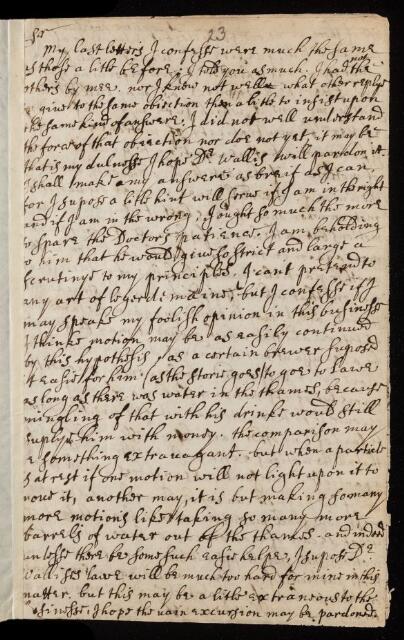 23
Sr
My last letters I confesse were much the same
as those a litle before I told you as much. I had not the
others by mee. nor I know not well what other reply to
give to the same obiection then a litle to insist upon
the same kind of answere. I did not well understand
the force of that obiection nor doe not yet, it may be
that is my dulnesse I hope Dr Wallis will pardon it.
I shall make any my answere as breif as I can,
for I supose a litle hint will serve if I am in the right
and if I am in the wrong, I ought so much the more
to spare the Doctors patience. I am beholding
to him that he would give so strict and large a
scrutinye to my principles. I cant pretend to
any art of legerdemaine, but I confesse if I
may speake my foolish opinion in this businesse
I thinke motion may be as easily continued
by this hypothesis, as a certain brewer suposed
it easie for him (as the storie goes) to goe to Lawe
as long as there was water in the thames, because
mingling of that with his drinke would still
suplye him with money. the comparison may
be something extravagant. but when a particle
is at rest if one motion will not light upon it to
move it, another may, it is but making so many
more motions like taking so many more
barrels of water out of the thames. and indeed
unlesse there be some such easie helpe, I supose Dr
Wallises lawe will be much too hard for mine in this
matter. but this may be a litle extraneous to the
businesse. I hope the vain excursion may be pardoned.